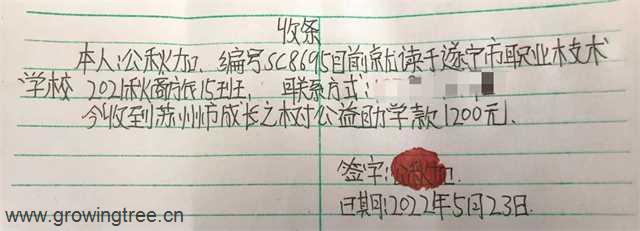 收条
本人:公秋加、编号SC8695目前就读于遂宁市职业技术
学校2021秋商旅15班, 联系方式:
今收到苏州市成长之树公益助学款1200元.
签字:公秋加.
日期:2022年5月23日.
www.growingtree.cn